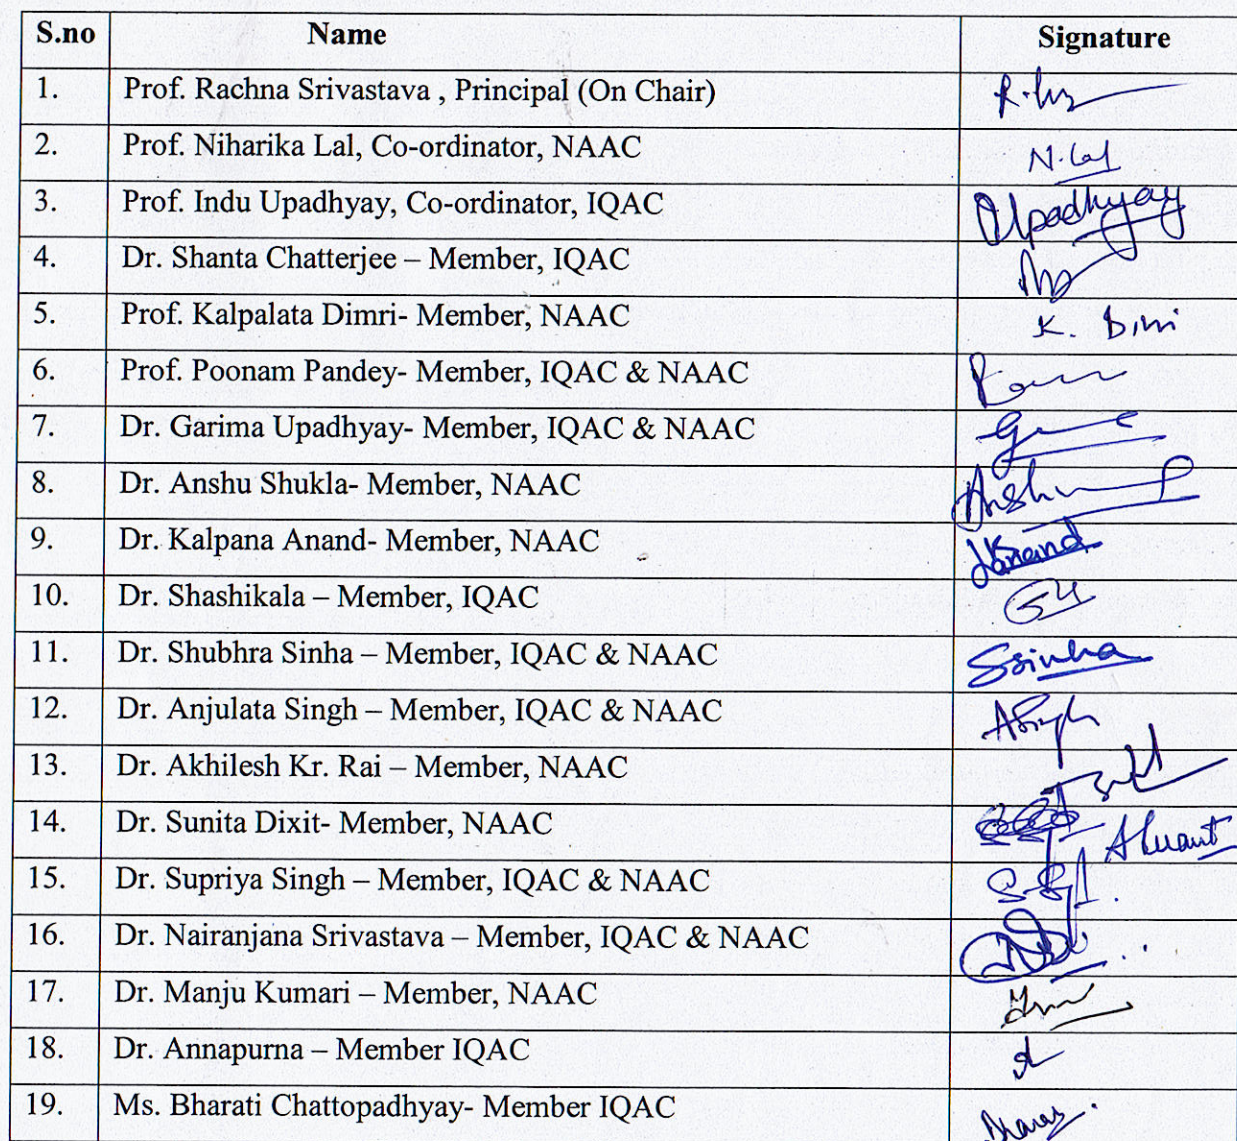 S.no Name Signature
1. Prof. Rachna Srivastava , Principal (On Chair)
2. Prof. Niharika Lal, Co-ordinator, NAAC N. Lal
3. Prof. Indu Upadhyay, Co-ordinator, IQAC Upadhyay
4. Dr. Shanta Chatterjee – Member, IQAC
5. Prof. Kalpalata Dimri- Member, NAAC K.
6. Prof. Poonam Pandey- Member, IQAC & NAAC
7. Dr. Garima Upadhyay- Member, IQAC & NAAC
8. Dr. Anshu Shukla- Member, NAAC Anshu
9. Dr. Kalpana Anand- Member, NAAC
10. Dr. Shashikala – Member, IQAC
11. Dr. Shubhra Sinha – Member, IQAC & NAAC Ssinha
12. Dr. Anjulata Singh – Member, IQAC & NAAC ASingh
13. Dr. Akhilesh Kr. Rai – Member, NAAC
14. Dr. Sunita Dixit- Member, NAAC
15. Dr. Supriya Singh – Member, IQAC & NAAC
16. Dr. Nairanjana Srivastava – Member, IQAC & NAAC
17. Dr. Manju Kumari – Member, NAAC
18. Dr. Annapurna – Member IQAC
19. Ms. Bharati Chattopadhyay- Member IQAC